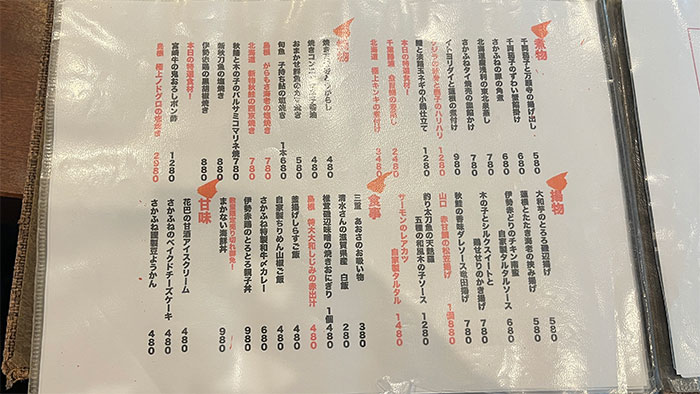 煮物
千両茄子と万願寺の揚げ出し 580
千両茄子のずわい蟹餡掛け 680
さかふねの豚の角煮 680
北海道産浅利の東北泉蒸し 780
さかふねタイ焼売の雲餡かけ 780
イトヨリダイと蓮根の煮付け 980
クジラの吹き と茄子のハリハリ 1280
鰻と淡路玉ネギの小鍋仕立て 1280
本日の特選食材!
千葉勝浦 2480
北海道 極上キンキの煮付け 3480
焼物
焼き 480
焼きコンニャク 480
おまかせ鮮魚のカマ焼き 580
旬魚 子持ち鮎の塩焼き 1本680
島根 がらもさ海老の塩焼き 780
北海道 新物秋鮭の西京焼き 780
秋鰆と木の子のバルサミコマリネ焼 780
新秋刀魚の塩焼き 880
伊勢赤鶏の黒胡椒焼き 880
本日の特選食材!
宮崎牛の鬼おろしポン酢 1280
島根 極上ノドグロの塩焼き 2980
揚物
大和芋のとろろ磯辺揚げ 580
蓮根とたたき海老の挟み揚げ 580
伊勢赤どりのチキン南蛮
自家製タルタルソース 680
木の子とシルクスイートと
鶏せせりのかき揚げ 780
秋鮭の香味ダレソース竜田揚げ 780
山口 赤甘鯛の松笠揚げ 1個880
釣り太刀魚の天麩羅
五種の和風木の子ソース 1280
サーモンのレアカツ
自家製タルタル 1480
食事
三重 あおさのお吸い物 380
清水さんの滋賀県産 白飯 280
椎茸磯辺味噌の焼きおにぎり 1個480
島根 特大大和しじみの赤出汁 480
釜揚げしらすご飯 480
自家製ちりめん山椒ご飯 480
さかふね特製和牛〆カレー 680
伊勢赤鶏のとろとろ親子丼 980
数量限定売り切れ御免!
まかない海鮮丼 980
甘味
花巴の甘酒アイスクリーム 480
さかふねのベイクドチーズケーキ 480
さかふね謹製豆ようかん 480